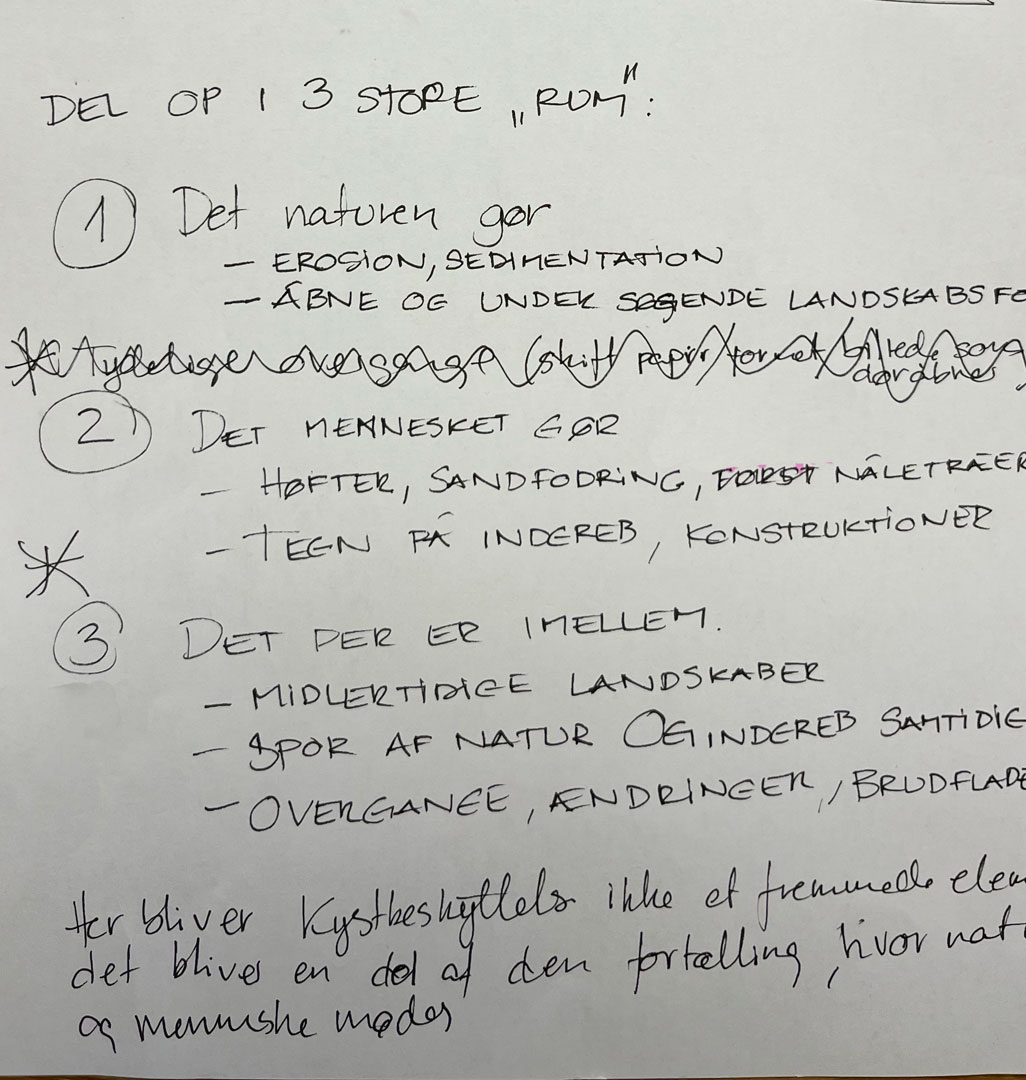 DEL OP I 3 STORE „RUM":
1 Det naturen gør
- EROSION, SEDIMENTATION
- ÅBNE OG UNDER SØGENDE LANDSKABSFO
* Tydelige overgange (skift papir/format/billede som
døråbner
2 DET MENNESKET GØR
- HØFTER, SANDFODRING, FØRST NÅLETRÆER
- TEGN PÅ INDEREB, KONSTRUKTIONER
*
3 DET DER ER IMELLEM.
- MIDLERTIDIGE LANDSKABER
- SPOR AF NATUR OG INDEREB SAMTIDIG
- OVERGANGE, ÆNDRINGER, / BRUDFLADE
Her bliver Kystbeskyttelse ikke et fremmede elem
det blives en del af den fortælling, hvor nat
og menniske mødes